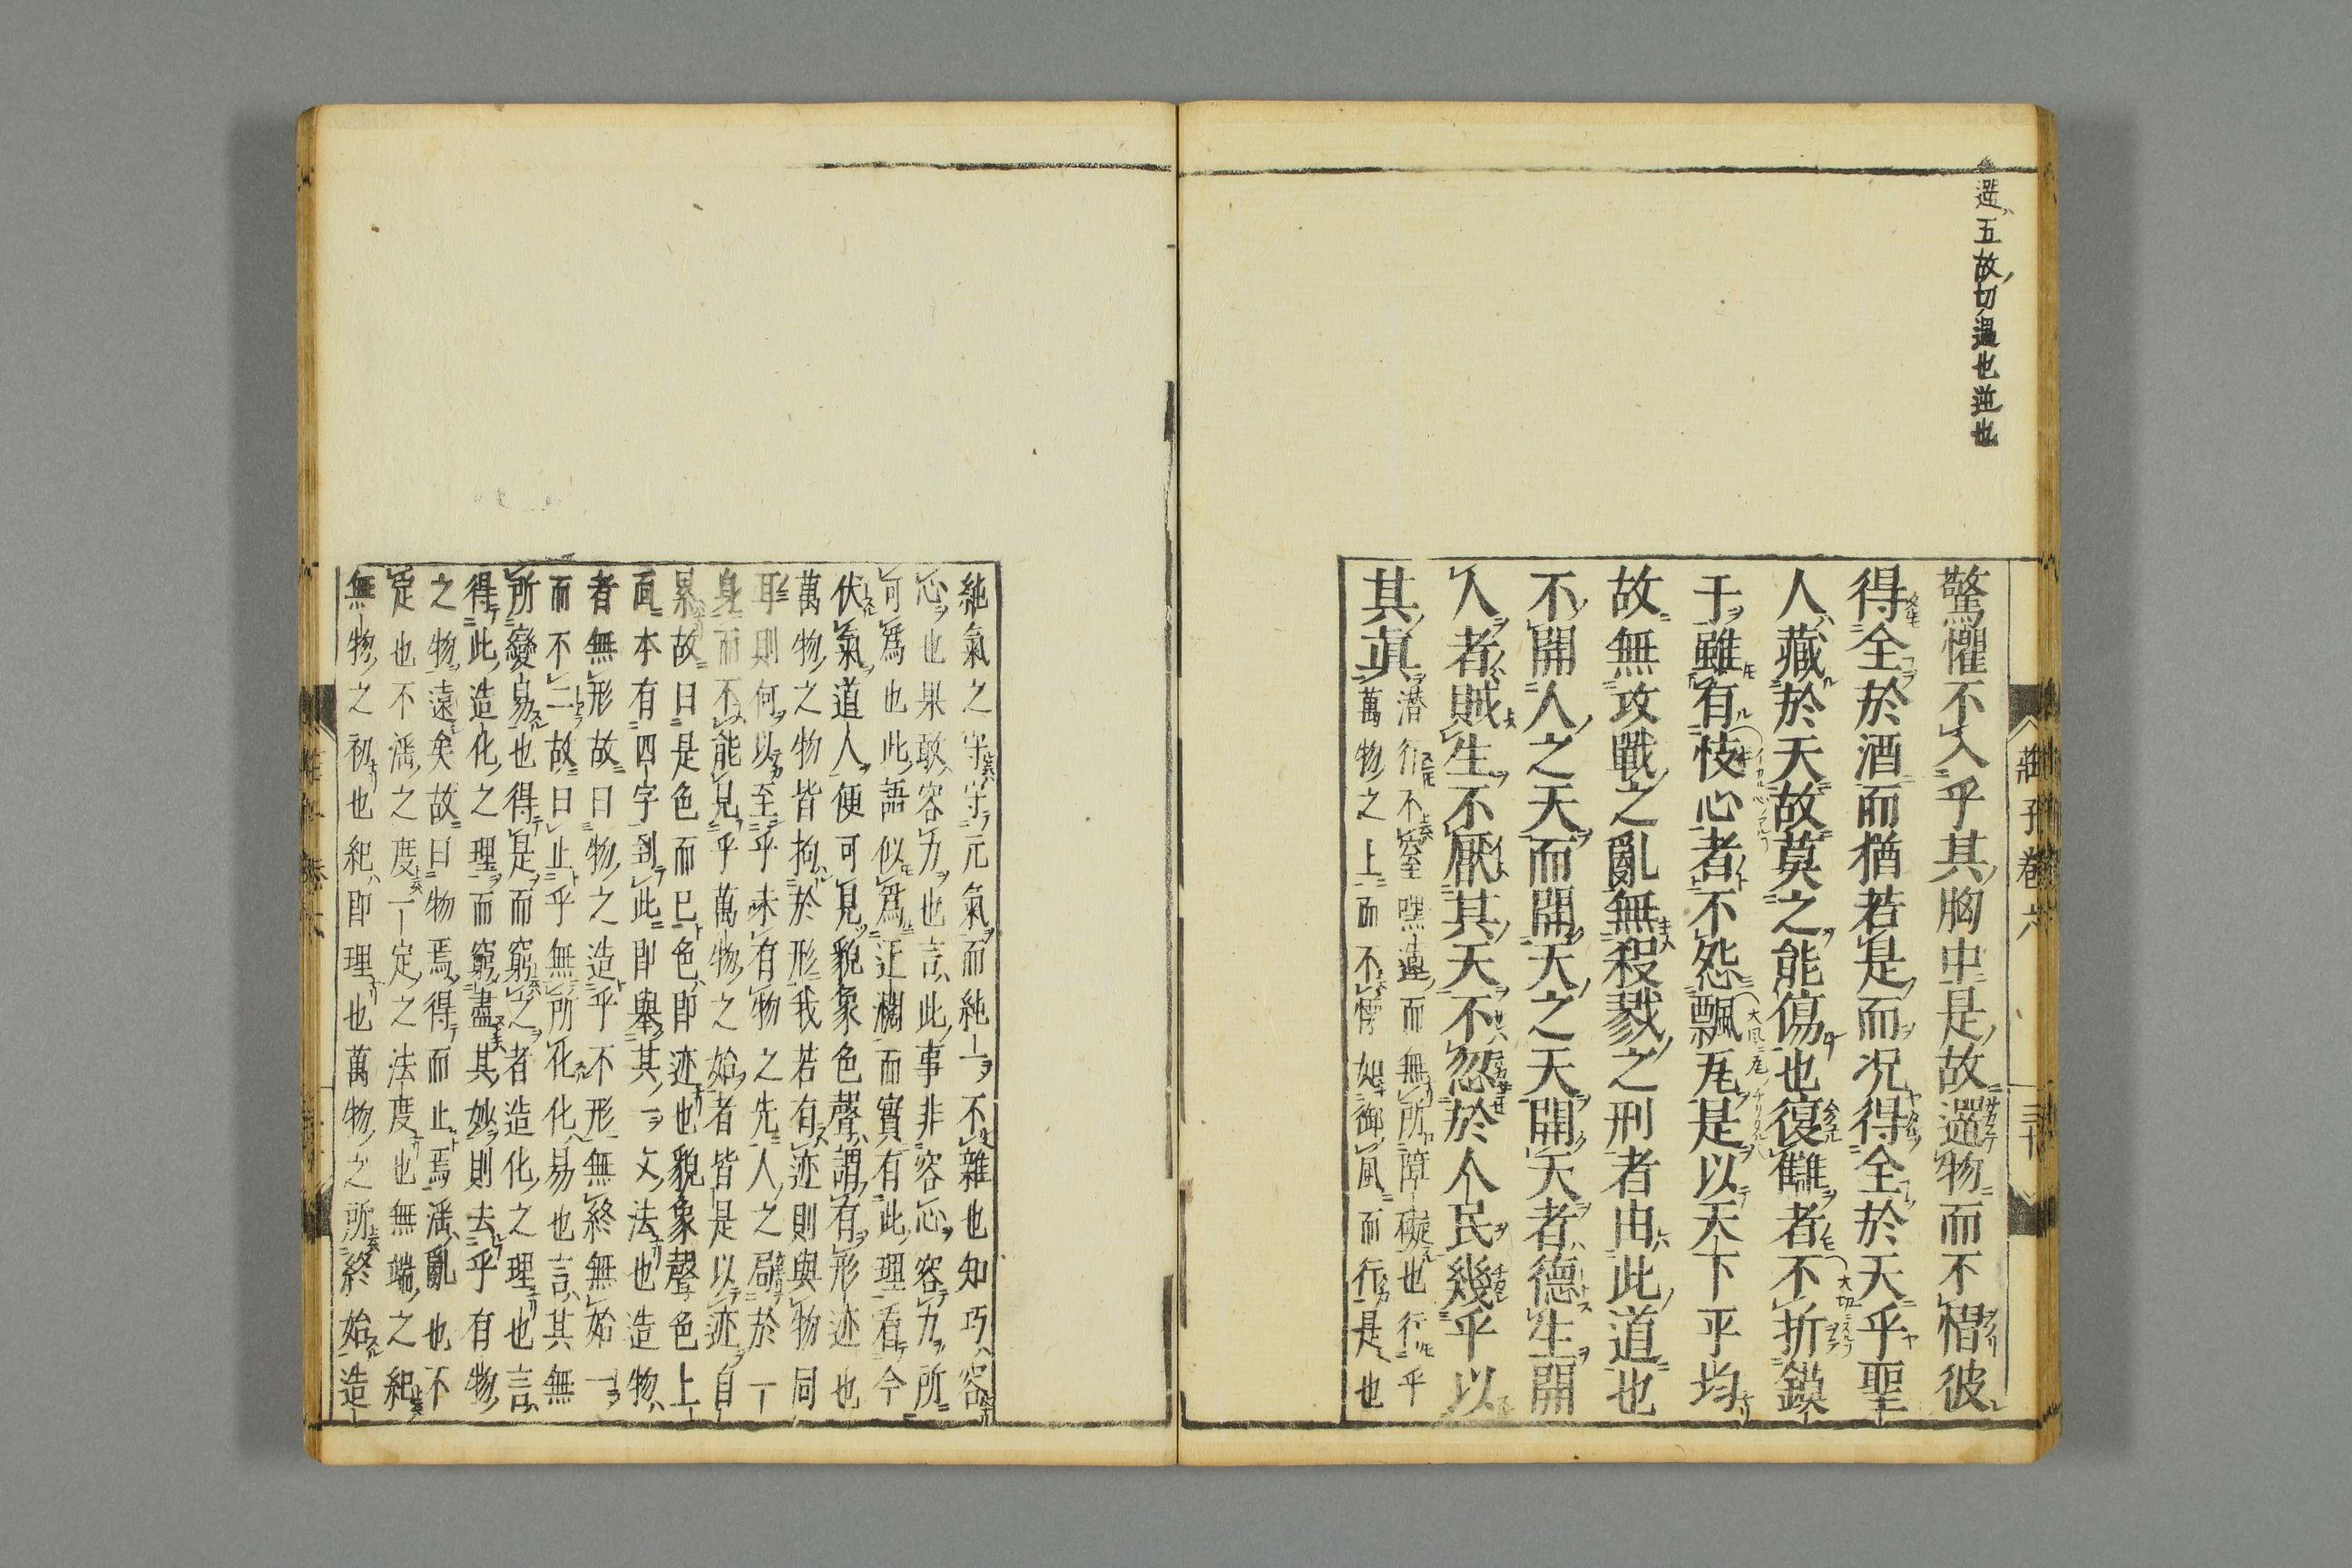 遻五故切遇也逆也
驚懼不入乎其胸中是故遻物而不慴彼
得全於酒而猶若是而况得全於天乎聖
人藏於天故莫之能傷也復讎者不折鏌
于雖有忮心者不怨飄瓦是以天下平均
故無攻戰之亂無殺戮之刑者由此道也
不開人之天而開天之天開天者德生開
人者賊生不厭其天不忽於人民幾乎以
其真
潜行不窒嘿運而無所障礙也行乎
萬物之上而不慄如御風而行是也
莊子卷六
三十
純氣之守守元氣而純一不雜也知巧容
心也果敢容力也言此事非容心容力所
可爲也此語似爲迂闊而實有此理看今
伏氣道人便可見貌象色聲謂有形迹也
萬物之物皆拘於形我若有迹則與物同
耳則何以至乎未有物之先人之局於一
身而不能見乎萬物之始者皆是以迹自
累故曰是色而已色即迹也貌象聲色上
面本有四字到此即舉其一文法也造物
者無形故曰物之造乎不形無終無始一
而不二故曰止乎無所化化易也言其無
所變易也得是而窮之者造化之理也言
得此造化之理而窮盡其妙則去乎有物
之物遠矣故曰物焉得而止焉淫亂也不
定也不淫之度一定之法度也無端之紀
無物之初也紀即理也萬物之所終始造